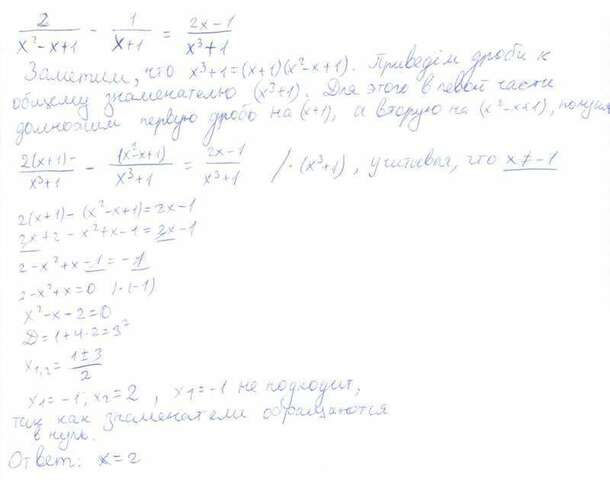 2/(x²-x+1) - 1/(x+1) = (2x-1)/(x³+1)
Заметим, что x³+1=(x+1)(x²-x+1). Приведём дроби к
общему знаменателю (x³+1). Для этого в левой части
домножим первую дробь на (x+1), а вторую на (x²-x+1), получим
2(x+1)/(x³+1) - (x²-x+1)/(x³+1) = (2x-1)/(x³+1) /·(x³+1), учитывая, что x≠-1
2(x+1)-(x²-x+1)=2x-1
2x+2-x²+x-1=2x-1
2-x²+x-1=-1
2-x²+x=0 /·(-1)
x²-x-2=0
D=1+4·2=3²
x₁,₂=(1±3)/2
x₁=-1; x₂=2, x₁=-1 не подходит,
так как знаменатели обращаются
в нуль.
Ответ: x=2